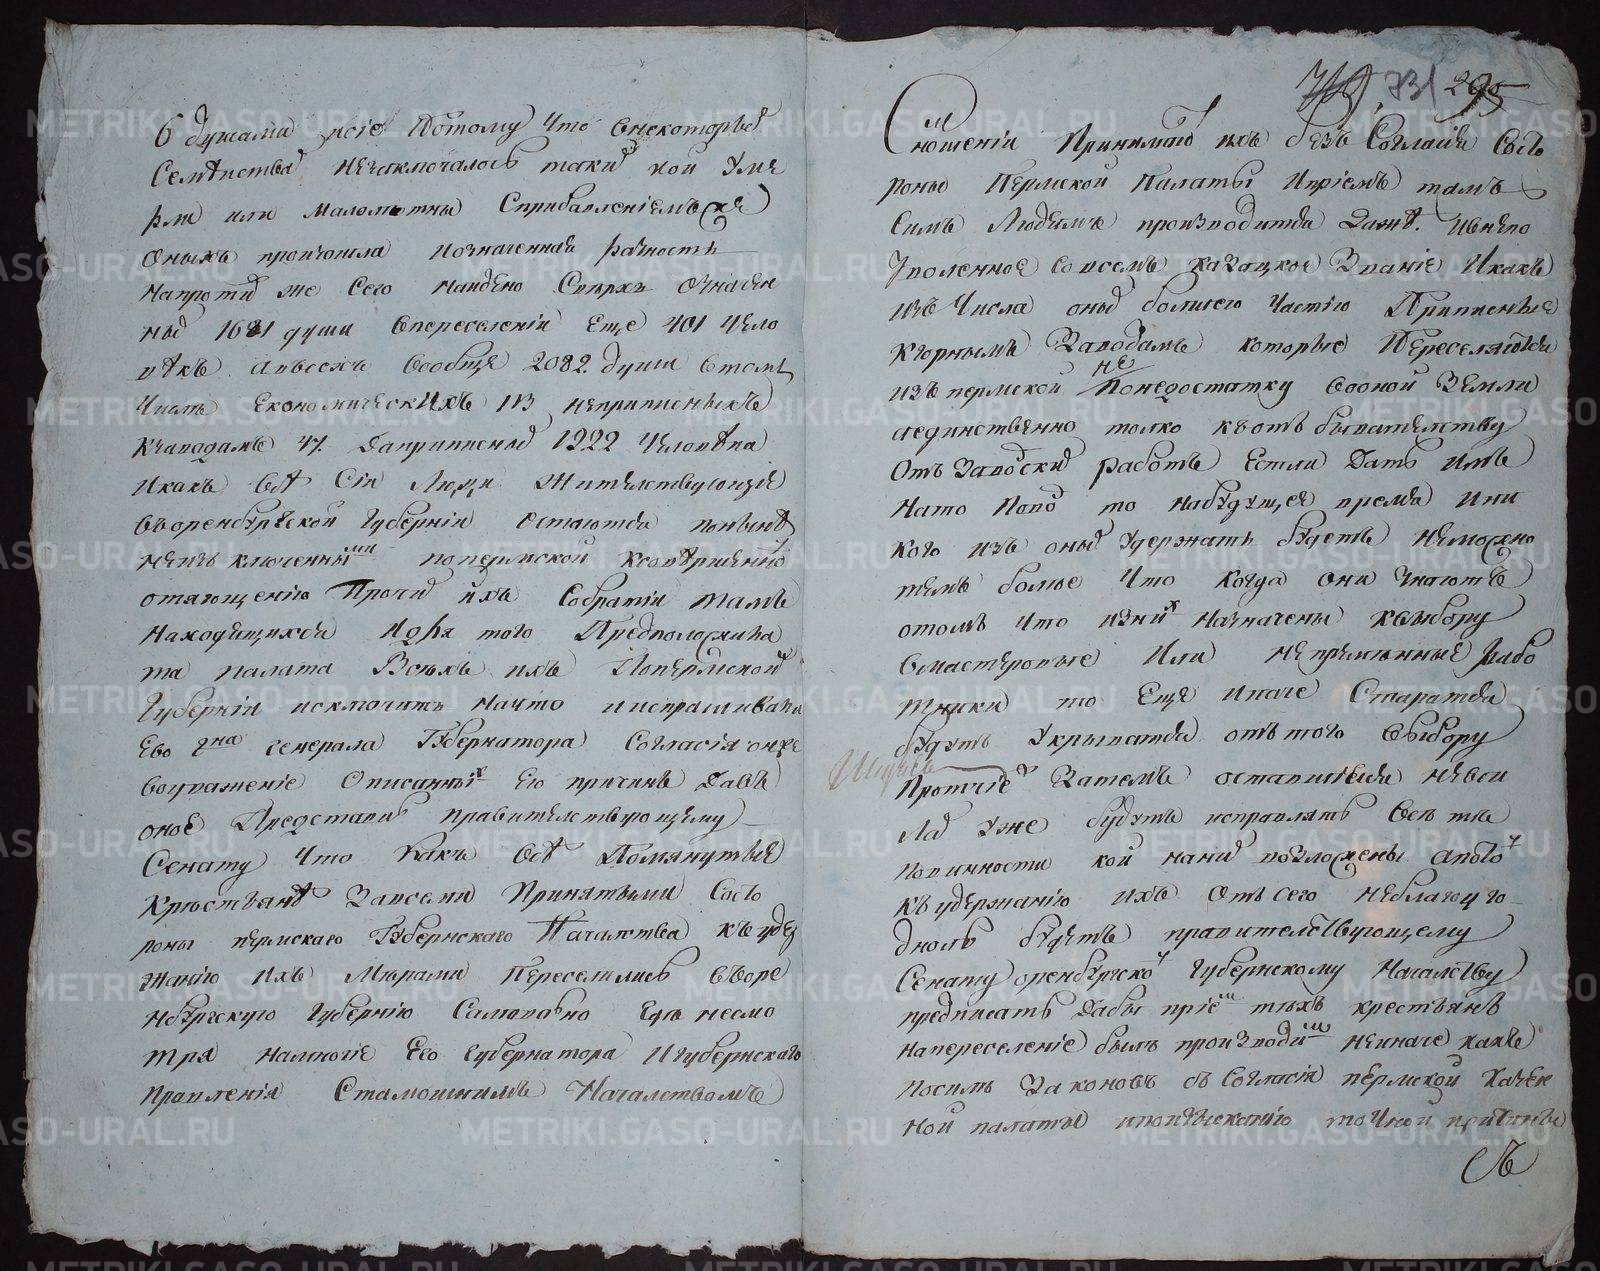 6 душами, не потому что в некоторых
Семействах незаключалось таких кои уме
рли или малолетны с прибавлениемъ же
оныхъ произошла означенная разность
напротив же сего найдено сверхъ означен
ных 1681 души в переселении еще 401 чело
векъ а всехъ вообще 2082 души в томъ
числе экономическихъ 113 неприписныхъ
кзаводамъ 47. да приписных 1922 человека
и какъ все сии люди жительствующие
в оренбургской губернии остаются поныне
неизъключенными по пермской к совершенно
отягощению прочих ихъ собратий тамъ
находящихся и для того предположила
та палата всехъ ихъ по пермской
губернии исключить на что и испрашивала
Ево гна генерала губернатора согласия онже
воуважение описанных ею причинъ давъ
оное представилъ правительствующему
Сенату что какъ все помянутые
крестьяне за всеми принятыми со сто
роны пермскаго губернского началства къ удер
жанию ихъ мерами переселились въ оре
нбургскую губернию самовольно еще несмо
тря на многие его губернатора и губернскаго
правления с тамошнимъ началствомъ
731 295
Сношении принимают ихъ безъ согласия со сто
роны пермской палаты и приемъ тамъ
симъ людямъ производится даже и в непо
зволенное совсемъ казацкое звание и какъ
изъ числа оных болшею частию приписные
к горнымъ заводамъ которые переселяются
изъ пермской не по недостатку в оной земли
а единственно толко къ отъбывательству
отъ заводских работъ естли дать имъ
на то повод то на будущее время ни
кого изъ оных удержать будетъ неможно
темъ более что когда они знаютъ
о томъ что из них назначены к выбору
в мастеровые или непременные рабо
тники то еще и паче стараться
будутъ укрыватся отъ того выбору
Прочие затемъ оставшиеся не в си
лах уже будутъ исправлять все те
повинности кои на них возложены а потому
къ удержанию ихъ отъ сего неблагоуго
дноль будетъ правителствующему
Сенату оренбургскому губернскому началству
предписать дабы прием техъ крестьянъ
на переселение былъ производим неиначе какъ
по силъ законовъ съ согласия пермской казен
ной палаты и по изъисканию точной причины
съ